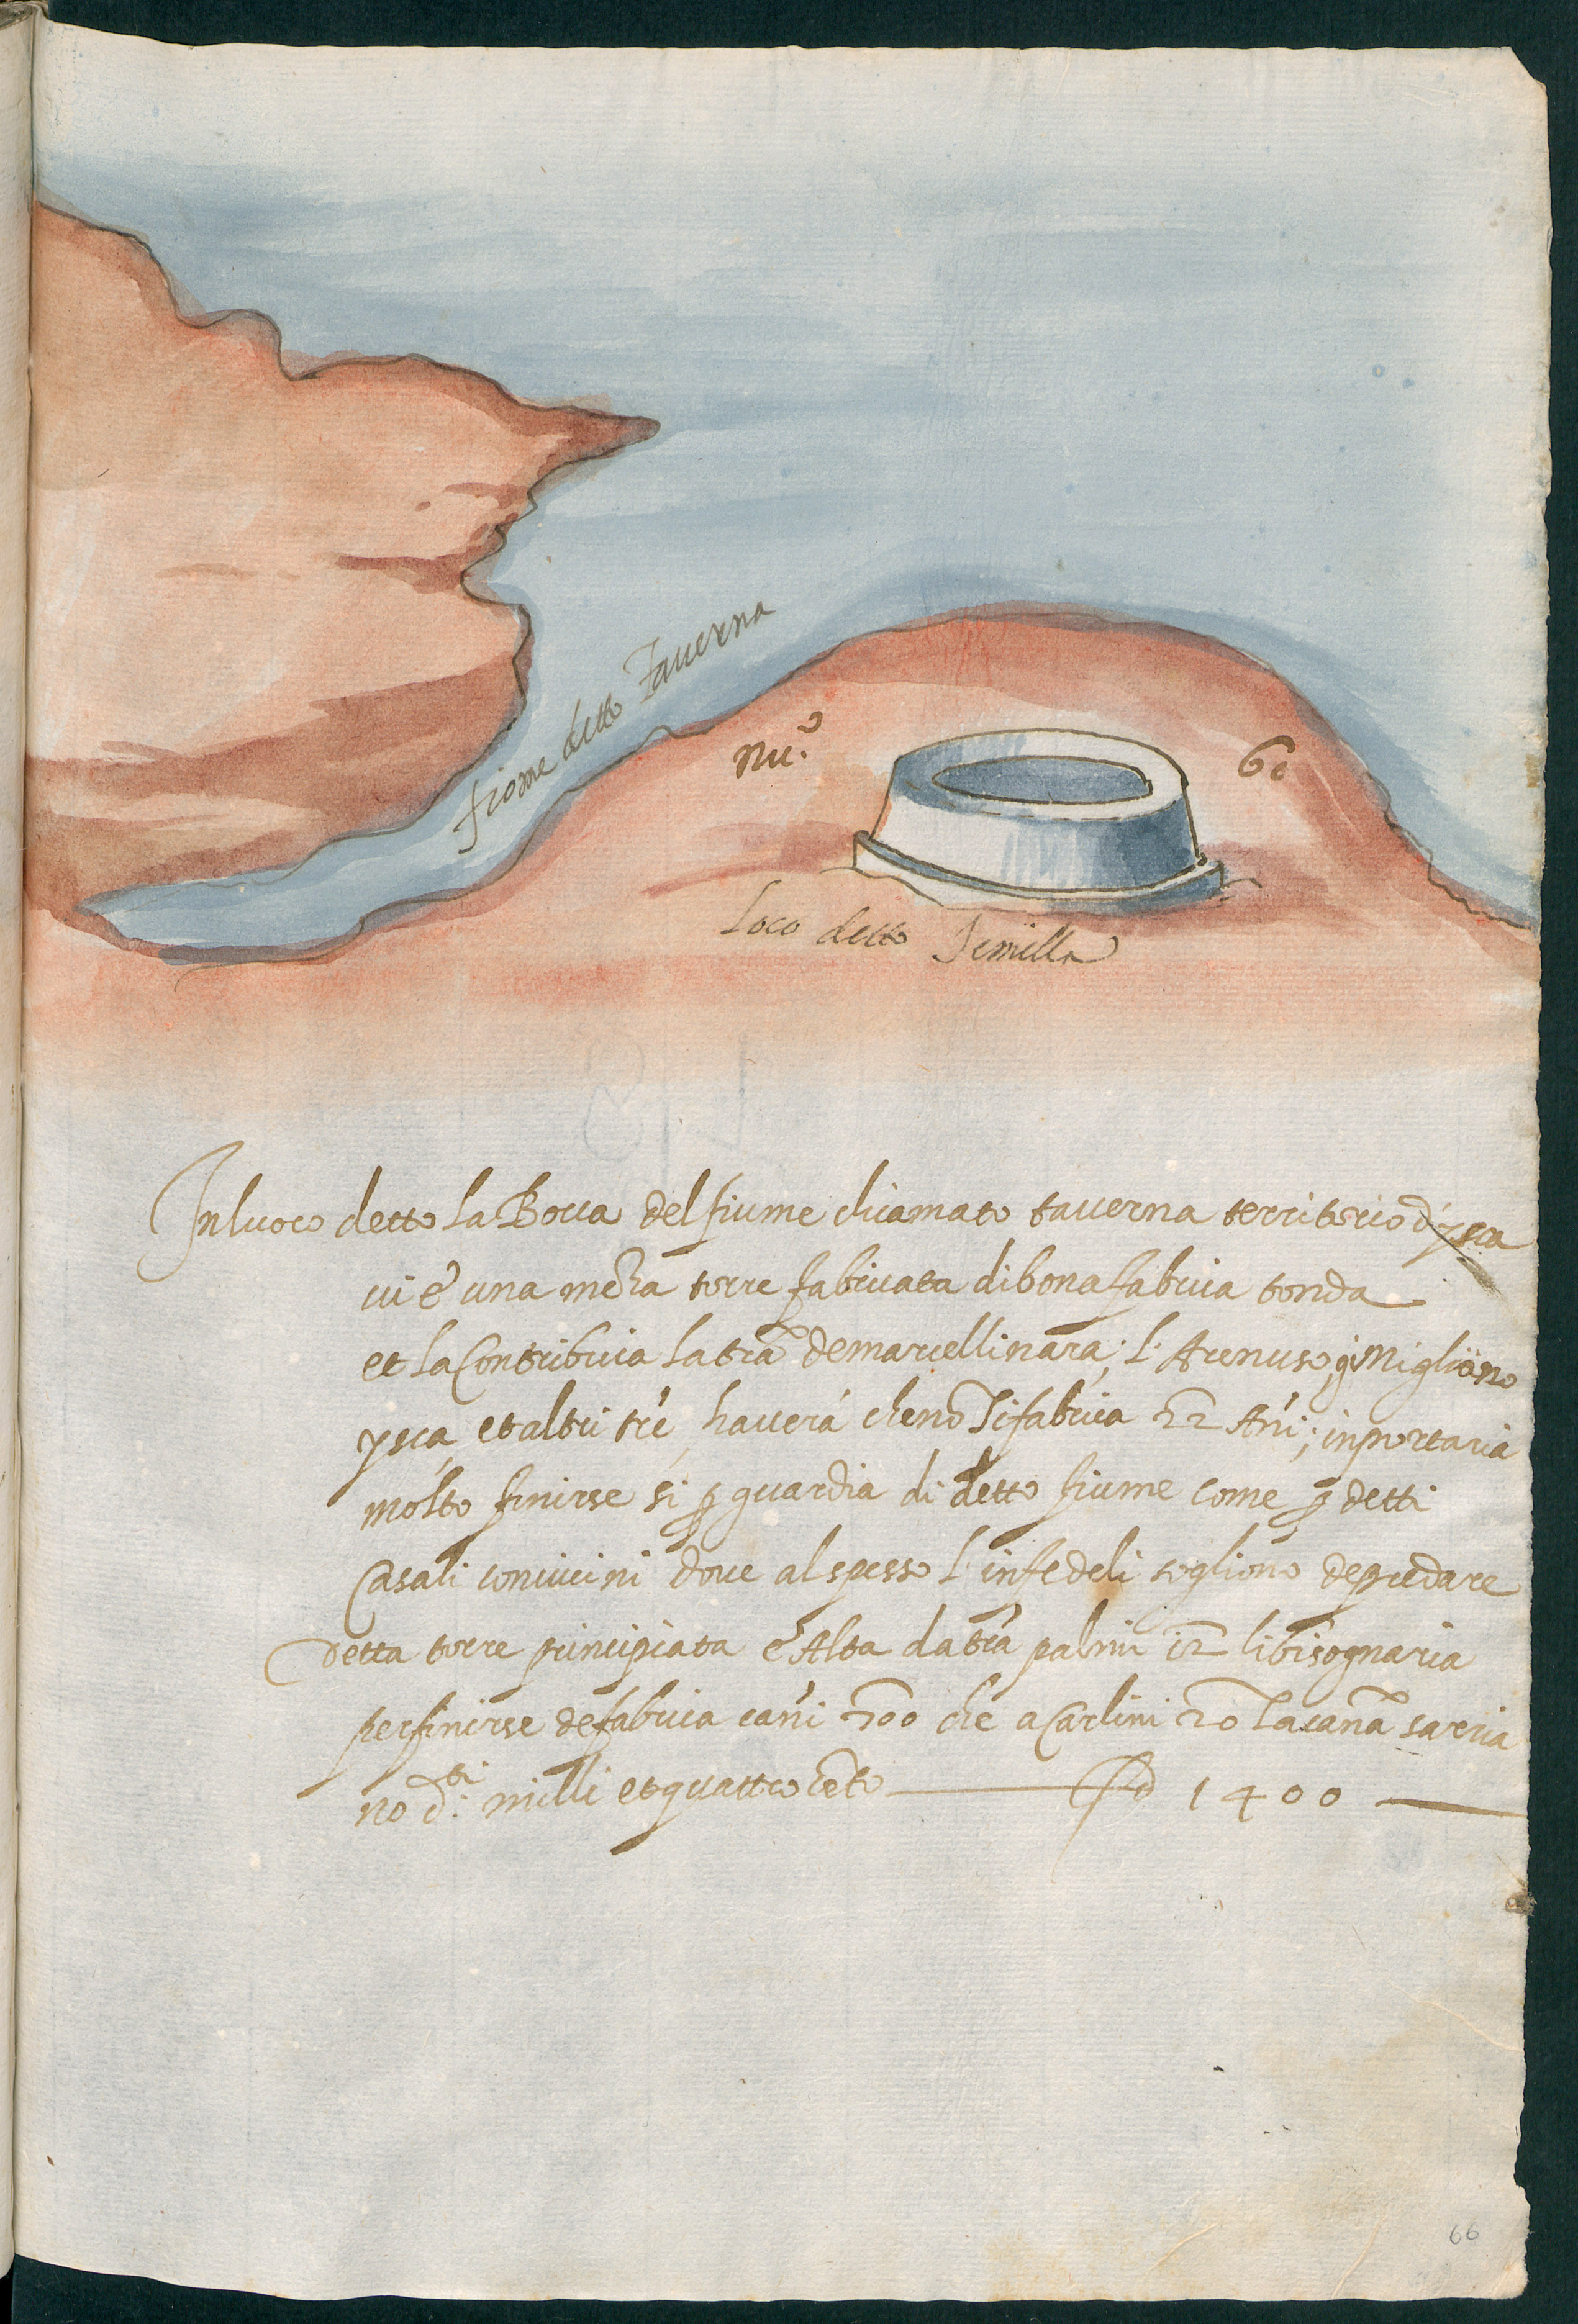 fiome detto Tauerna
nu.º 61
Loco detto Simille
In luoco detto la Bocca del fiume chiamato tauerna territorio d'ysca
ui e una meza torre fabricata di bona fabrica tonda
et la Contribuia la trã de marcellinara; L'Arenuso,
ysca, et altri tré, hauerá che nõ si fabrica 22 Ani; inportaria
molto finirse si ꝑ guardia di detto fiume come ꝑ detti
Casali conuicini doue al spesso l'infedeli sogliono depredare
Detta torre principiata é Alta da trã palmi 12 li bisognaria
per finirse de fabrica cani 700 che a Carlini 20 la cana sarria
no d.ti milli et quattro cẽto — 1400 —
66